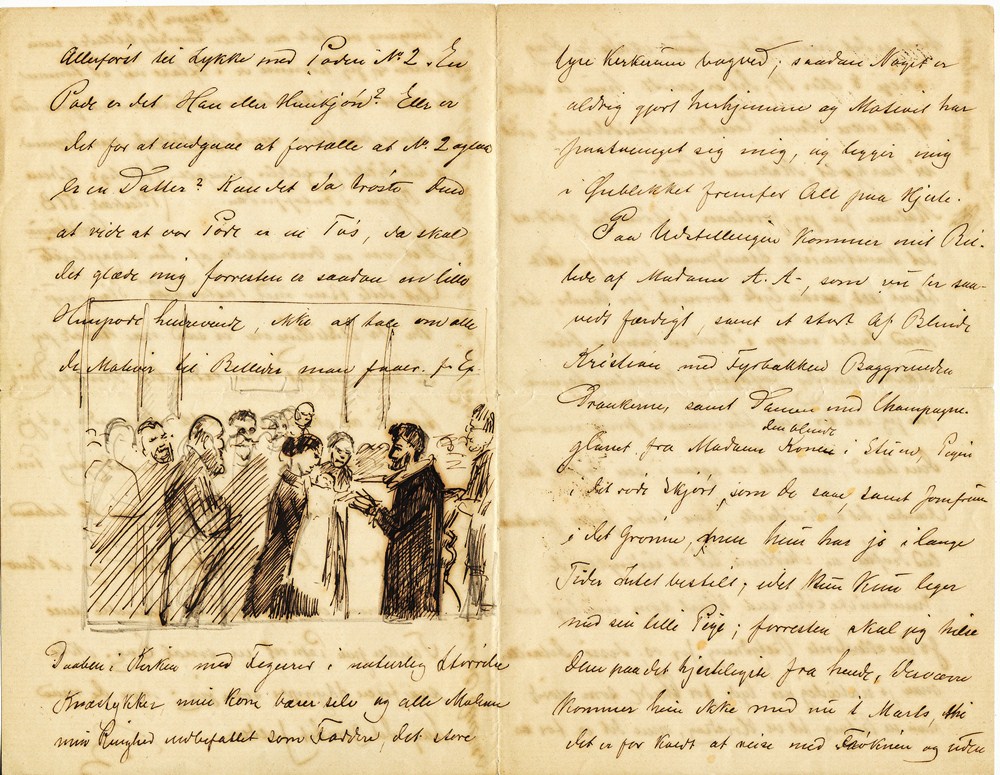 Allerførst til Lykke med Poden No 2. En
Pode er det Han eller Hunkjøn? Eller er
det for at undgaae at fortælle at No. 2 ogsaa
er en Datter? Kan det da trøste Dem
at vide at vor Pode er en Tøs, da skal
det glæde mig forresten er saadan en lille
Hunpode henrivende, ikke at tale om alle
de Motiver til Billeder man faaer. f. Ex.
Daaben i Kirken med Figurer i naturlig Størrelse
Knæstykker, min Kone bærer selv og alle Malerne
min Ringhed indbefattet som Faddere, det store
lyse Kirkerum bagved; saadan Noget er
aldrig gjort herhjemme og Motivet har
paatvunget sig mig, og ligger mig
i Øieblikket fremfor Alt paa Hjerte.
Paa Udstillingen kommer mit Bil-
lede af Madame A. A-, som nu er saa-
vidt færdigt, samt et stort af Blinde
Kristian med Fyrbakken Baggrunden
Drankerne, samt Damen med Champagne-
glasset fra Madam
den blinde
Konen i Stuen, Pigen
i det røde Skjørt, som De saae, samt Jomfruen
i det Grønne, men hun har jo i lange
Tider Intet bestilt; idet hun kun leger
med sin lille Pige; forresten skal jeg hilse
Dem paa det hjerteligste fra hende, desværre
kommer hun ikke med nu i Marts, thi
det er for koldt at reise med Frøknen og uden